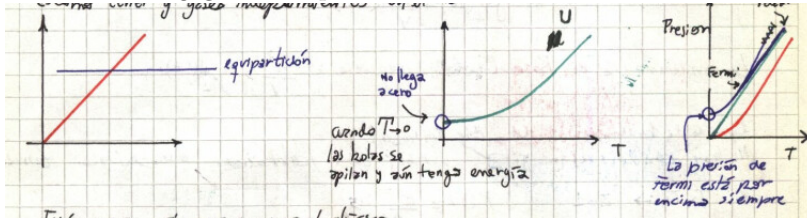 y gases
equipartición
No llega
a cero
cuando T→0
las bolas se
apilan y aún tenga energía
U
T
Presion
Fermi
T
La presión de
Fermi está por
encima siempre